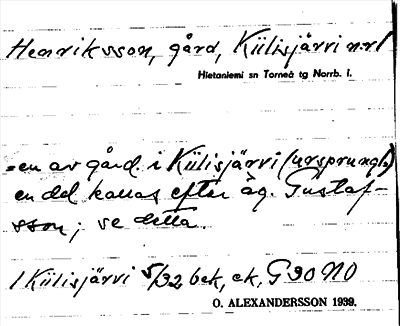 Henriksson, gård, Kiilisjärvi nr 1
Hietaniemi sn Torneå tg Norrb. l.
= en av gård. i Kiilisjärvi (ursprungl.)
en del kallas efter äg. Gustaf-
sson; se detta.
/ Kiilisjärvi 5/32 bek, ek, G 30 NO
O. ALEXANDERSSON 1939.